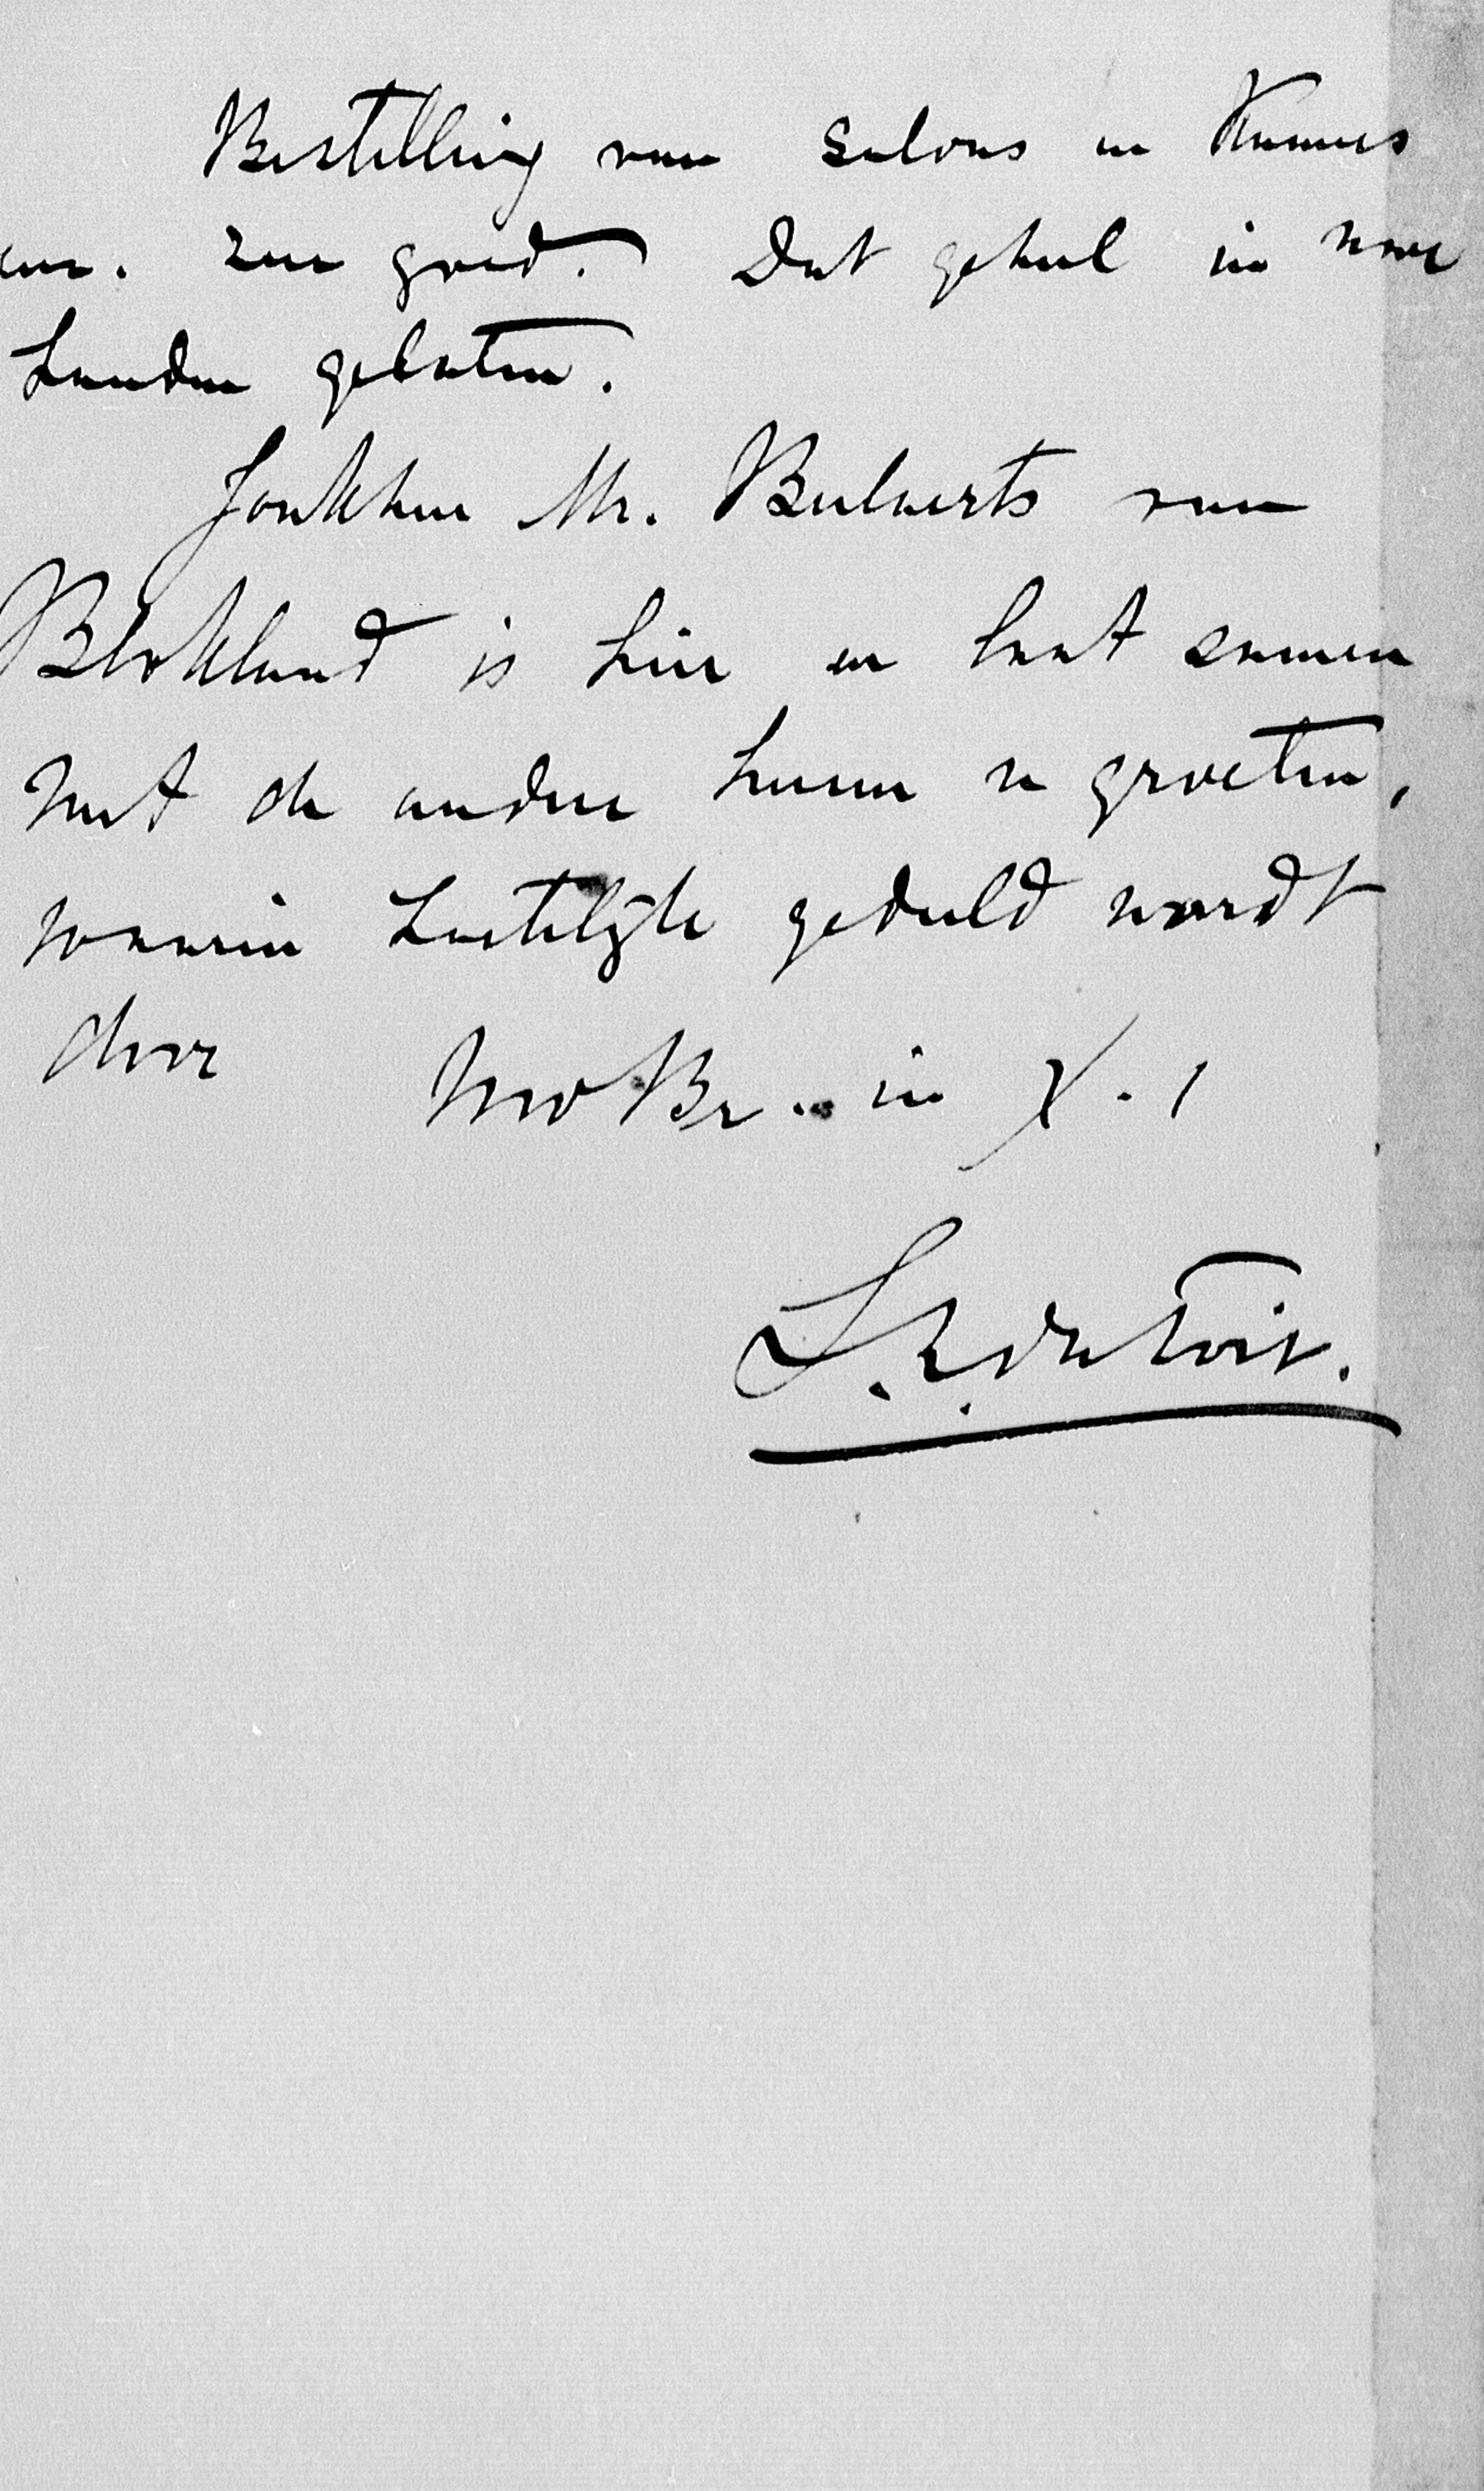 Bestelling van salons en Kamers
enz. zeer goed. Dat geheel in uwe
handen gelaten.
Jonkheer Mr. Beelaerts van
Blokland is hier en laat samen
met de andere heeren u groeten,
waarin hartelijk gedeeld wordt
door Uw Br. in X. ,
S. J. du Toit.